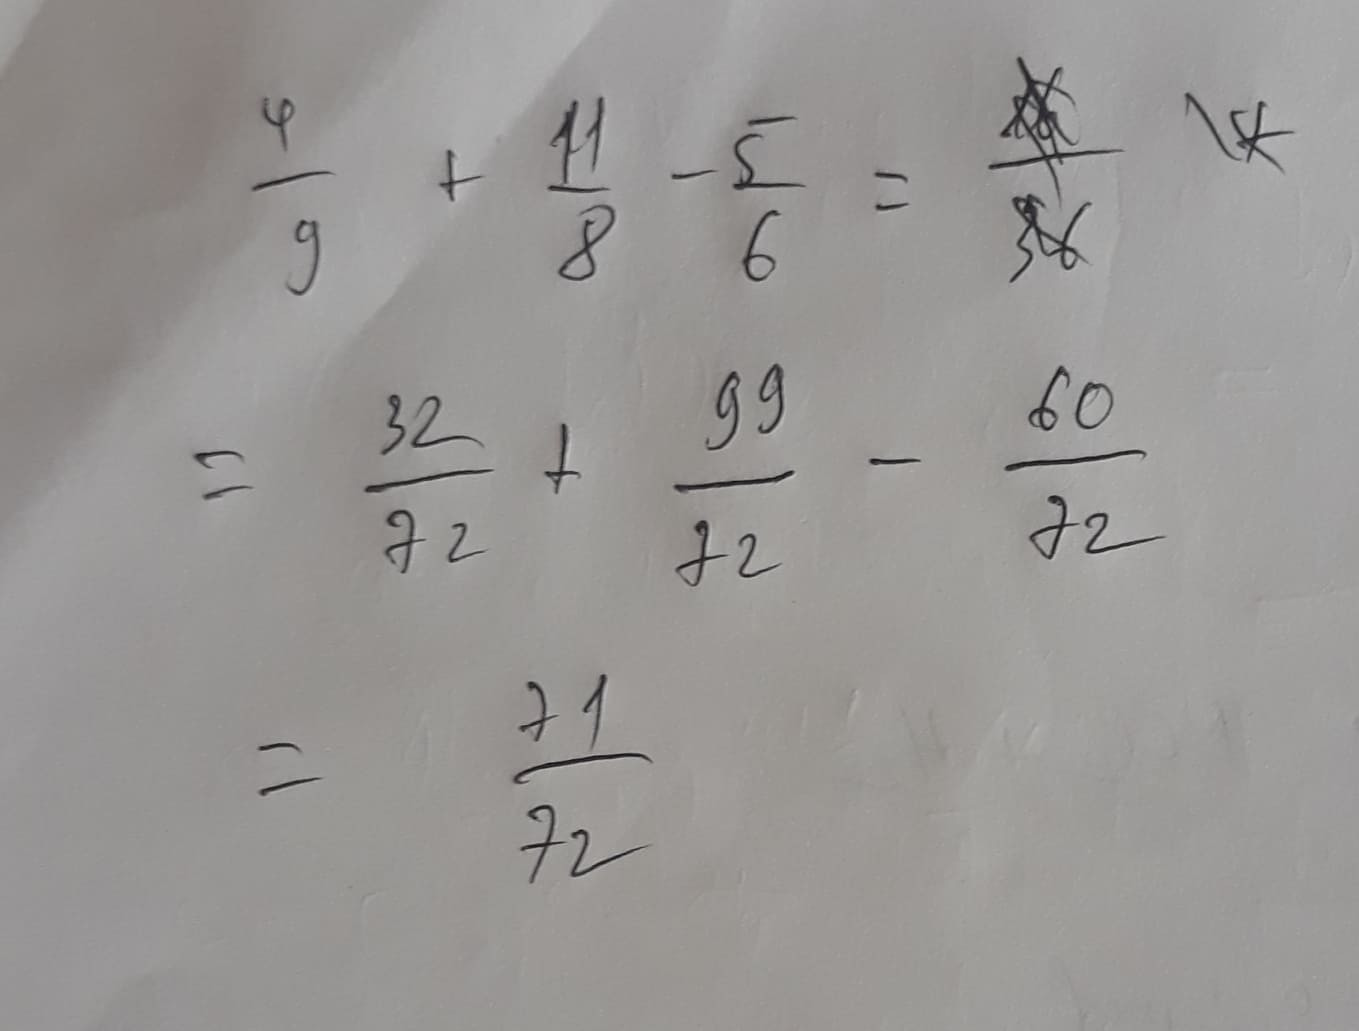 4/9 + 11/8 - 5/6 =
= 32/72 + 99/72 - 60/72
= 71/72